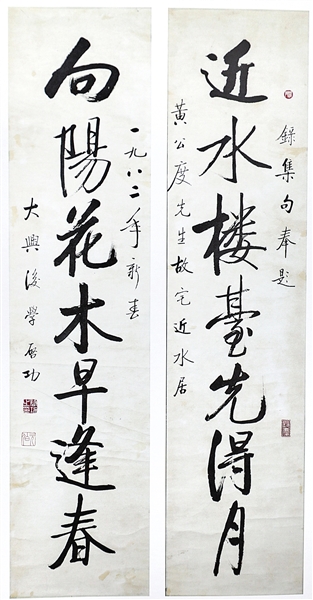 錄集句奉題
近水楼臺先得月
黃公度先生故宅近水居
一九八二年新春
向陽花木早逢春
大興後學啓功